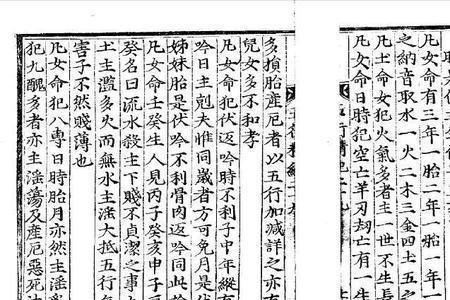 凡女命有三年一胎二年一胎一年一
之納音取水一火二木三金四土五之
凡土命女犯火氣多者主一世不生長
凡女命日時犯空亡羊刃劫亡有一生
五行精紀
多損胎産厄者以五行加減詳之亦有
兒女多不和孝
凡女命犯伏返吟時不利子中年縱有
吟日主剋夫惟同歲者方可免月是伏
姊妹胎是伏吟不利骨肉返吟同此
凡女命壬癸生人見丙子癸亥申子
癸名曰流水殺主下賤不貞潔之事
土主濫多火而無水主滛大抵五行
害子不然賤薄也
凡女命犯八專日時胎月亦然主滛
犯九醜多者亦主滛蕩及産厄惡死